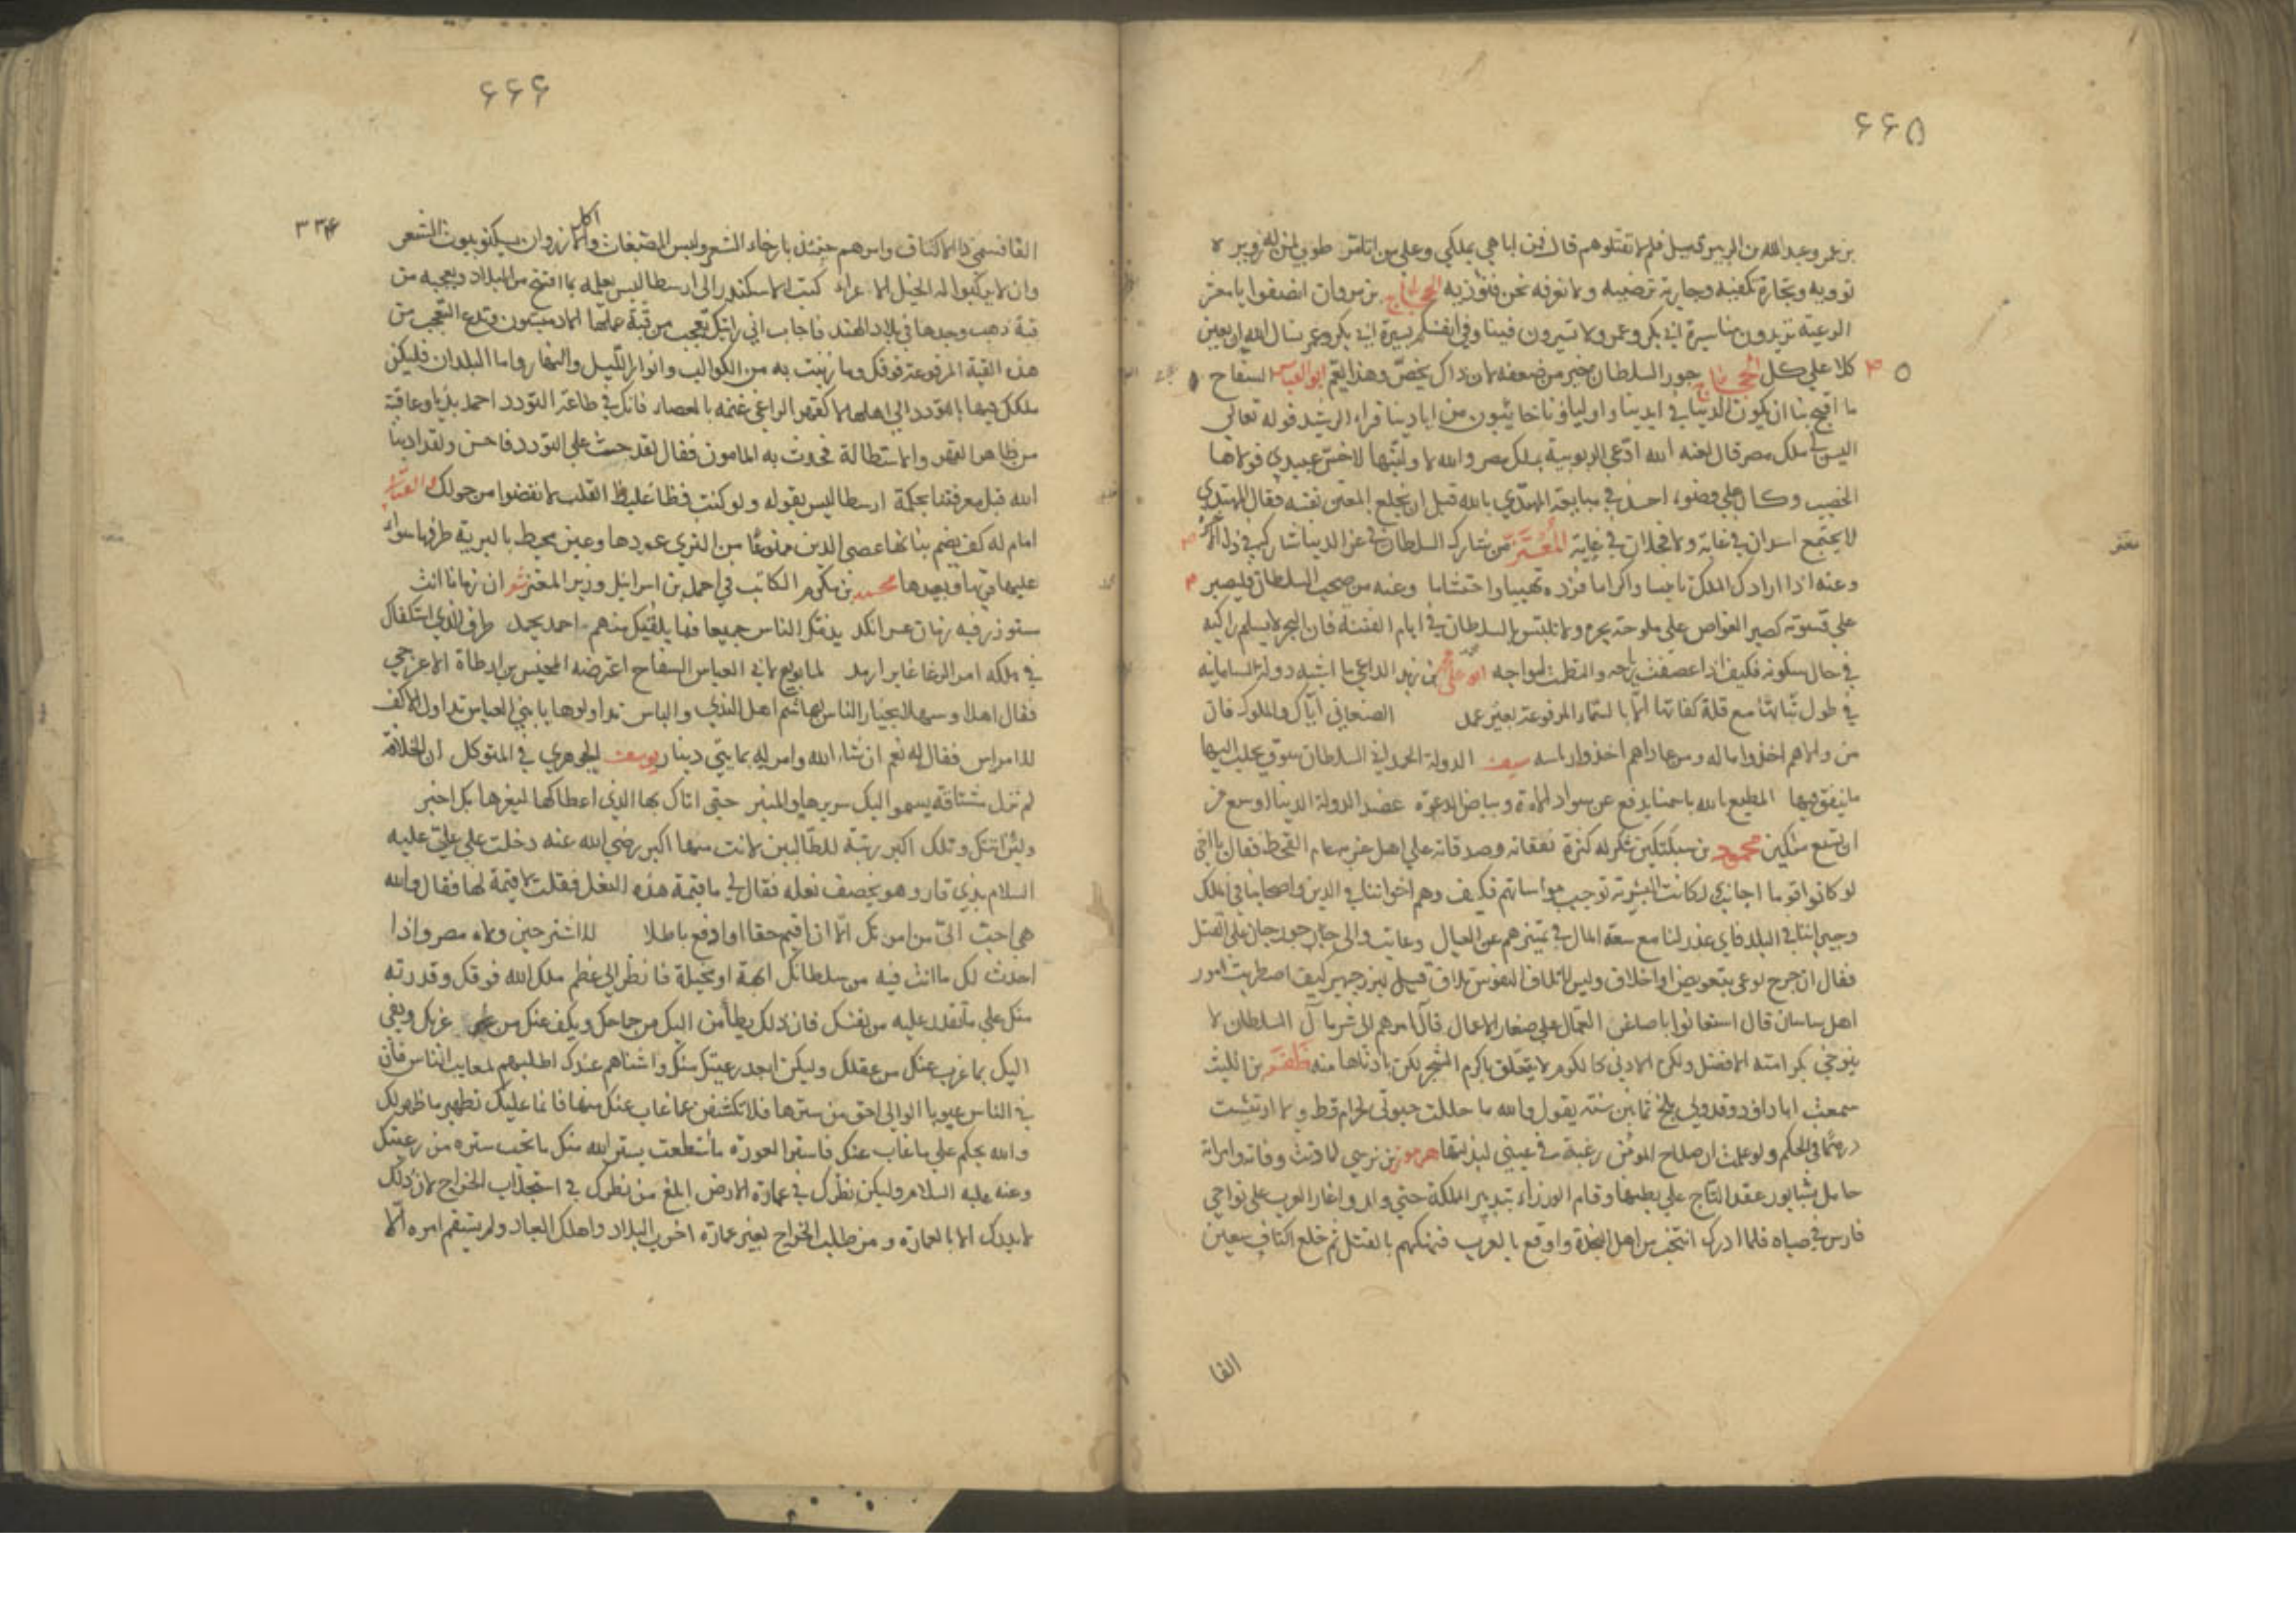 ۶۶۵
بن عمر وعبد الله بن الزبير في سبيل فلم لا تقتلوهم قال فمن اباهي بملكي وعلى من اتامر طوبى لمن له زوير لا
تؤويه وبجارة تكفيه وجارية ترضيه ولا نعرفه نحن فنؤذيه الحجاج بن مروان انصفوا يا معشر
الرعية تريدون منا سيرة ابي بكر وعمر ولا تسيرون فينا وفي انفسكم بسيرة ابي بكر وعمر نسال الله ان يعين
كلا على كل الحجاج جور السلطان خير من ضعفه لان ذاك يخص وهذا يعم ابو العباس السفاح
ما اقبح بنا ان يكون الدنيا في ايدينا واولياؤنا خائبون من ايادينا قراء الرشيد قوله تعالى
اليس لي ملك مصر قال لعنه الله ادعى الربوبية بملك مصر والله لا ولينها لاخس عبيدي فولاها
الخصيب وكان على وضوءه احمد في مبايعة المهتدي بالله قبل ان يخلع المعتز نفسه فقال المهتدي
لا يجتمع اسدان في غابة ولا فحلان في عانة المعتز من شارك السلطان في عز الدنيا شاركه في ذل الاخرة
وعنه اذا زادك الملك تانيسا واكراما فزده تهيبا واحتشاما وعنه من صحب السلطان فليصبر
على قسوته كصبر الغواص على ملوحة بحره ولا تلتبس بالسلطان في ايام الفتنة فان البحر لا يسلم راكبه
في حال سكونه فكيف اذا عصفت رياحه والتطمت امواجه ابو علي بن زيد الداعي ما اشبه دولة السامانية
في طول ثباتها مع قلة كفاتها الا بالسماء المرفوعة بغير عمد الصنعاني اياك والملوك فان
من والاهم اخذوا ماله ومن عاداهم اخذوا راسه سيف الدولة الحمداني السلطان سوق يجلب اليها
ما ينفق فيها المطيع بالله باحسنا يدفع عن سواد المادة وبياض الدعوة عضد الدولة الدنيا اوسع من
ان تسع ملكين محمود بن سبكتكين شكر له كثرة نفقاته وصدقاته على اهل غزنه عام القحط فقال يا اخي
لو كانوا قوما اجانب لكانت البشرية توجب مواساتهم فكيف وهم اخواننا في الدين واصحابنا في الملك
وجيراننا في البلد فاي عذر لنا مع سعة المال في تميزهم عن العيال وعاتب والي جرجان على القتل
فقال ان جرح لوعى بتعويض واخلاق وليس لاتلاف النفوس تلاق قيل لبزرجمهر كيف اضطربت امور
اهل ساسان قال استعانوا باصاغر العمال على صغار الاعمال فآل امرهم الى شر مآل السلطان لا
يتوخى بكرامته الافضل ولكن الادنى كالكرم لا يتعلق باكرم الشجر لكن بادناها منه نصر بن الليث
سمعت ابا داود وقد ولي بلخ ثمانين سنة يقول والله ما حللت حبوتي لحرام قط ولا ارتشيت
درهما في الحكم ولو علمت ان صلاح المؤمن رغبة في عيني لبذلتها هرمز بن نرسي لما دنت وفاته وامراته
حامل بشابور عقد التاج على بطنها وقام الوزراء بتدبير المملكة حتى ولد واغار العرب على نواحي
فارس في صباه فلما ادرك انتخب من اهل النجدة واوقع بالعرب فنهكهم بالقتل ثم خلع اكتاف سبعين
الفا
۶۶۶
۳۳۴
الفا فسمي ذا الاكتاف وامرهم حينئذ بارخاء الشعر ولبس المصبغات والازر وان يسكنوا بيوت الشعر
وان لا يركبوا الخيل الا عراء كتب الاسكندر الى ارسطاليس يعلمه بما افتتح من البلاد ويعجبه من
قبة ذهب وجدها في بلاد الهند فاجاب اني رايتك تعجب من قبة عملها الادميون وتدع التعجب من
هذه القبة المرفوعة فوقك وما زينت به من الكواكب وانوار الليل والنهار واما البلدان فليكن
ملكك فيها بالتودد الى اهلها لا كقهر الراعي غنمه بالعصا فانك في طاعة التودد احمد بدءا وعاقبة
من ظاهر القهر والاستطالة فحدث به المامون فقال لقد حث على التودد فاحسن ولقد ادبنا
الله قبل معرفتنا بحكمة ارسطاليس بقوله ولو كنت فظا غليظ القلب لانفضوا من حولك
امام له كف يضم بنانها عصى الدين ممنوعا من البري عودها وعين محيط بالبرية طرفها سواء
عليها قربها وبعيدها محمد بن مكرم الكاتب في احمد بن اسرائيل وزير المعتز ان زمانا انت
مستوزر فيه زمان عسر انكد يذمك الناس جميعا فما يلقيك منهم احمد يحمد طرف الذي استكفاك
في ملكه امر الرعايا عاير ارمد لما بويع لابي العباس السفاح اعترضه المخيس بن ارطاة الاعرجي
فقال اهلا وسهلا بخيار الناس بهاشم اهل الندي والباس تداولوها يا بني العباس تداول الاكف
للامراس فقال له نعم ان شاء الله وامر له بمايتي دينار يوسف الجوهري في المتوكل ان الخلافة
لم تزل مشتاقة يسمو اليك سريرها والمنبر حتى اتاك بها الذي اعطاكها ليغرها بل اخبر
ولئن اتتك وتلك اكبر رتبة للطالبين لانت منها اكبر رضي الله عنه دخلت على علي عليه
السلام بذي قار وهو يخصف نعله فقال لي ما قيمة هذه النعل فقلت لا قيمة لها فقال والله
هي احب الي من امرتكم الا ان اقيم حقا او ادفع باطلا للاشتر حين ولاه مصر واذا
احدث لك ما انت فيه من سلطانك ابهة او مخيلة فانظر الى عظم ملك الله فوقك وقدرته
منك على ما تقدر عليه من نفسك فان ذلك يطامن اليك من جماحك ويكف عنك من غربك ويفي
اليك بما عزب عنك من عقلك وليكن ابعد رعيتك منك واشناهم عندك اطلبهم لمعايب الناس فان
في الناس عيوبا الوالي احق من سترها فلا تكشفن عما غاب عنك منها فانما عليك تطهير ما ظهر لك
والله يحكم على ما غاب عنك فاستر العورة ما استطعت يستر الله منك ما تحب ستره من رعيتك
وعنه عليه السلام وليكن نظرك في عمارة الارض ابلغ من نظرك في استجلاب الخراج لان ذلك
لا يدرك الا بالعمارة ومن طلب الخراج بغير عمارة اخرب البلاد واهلك العباد ولم يستقم امره الا